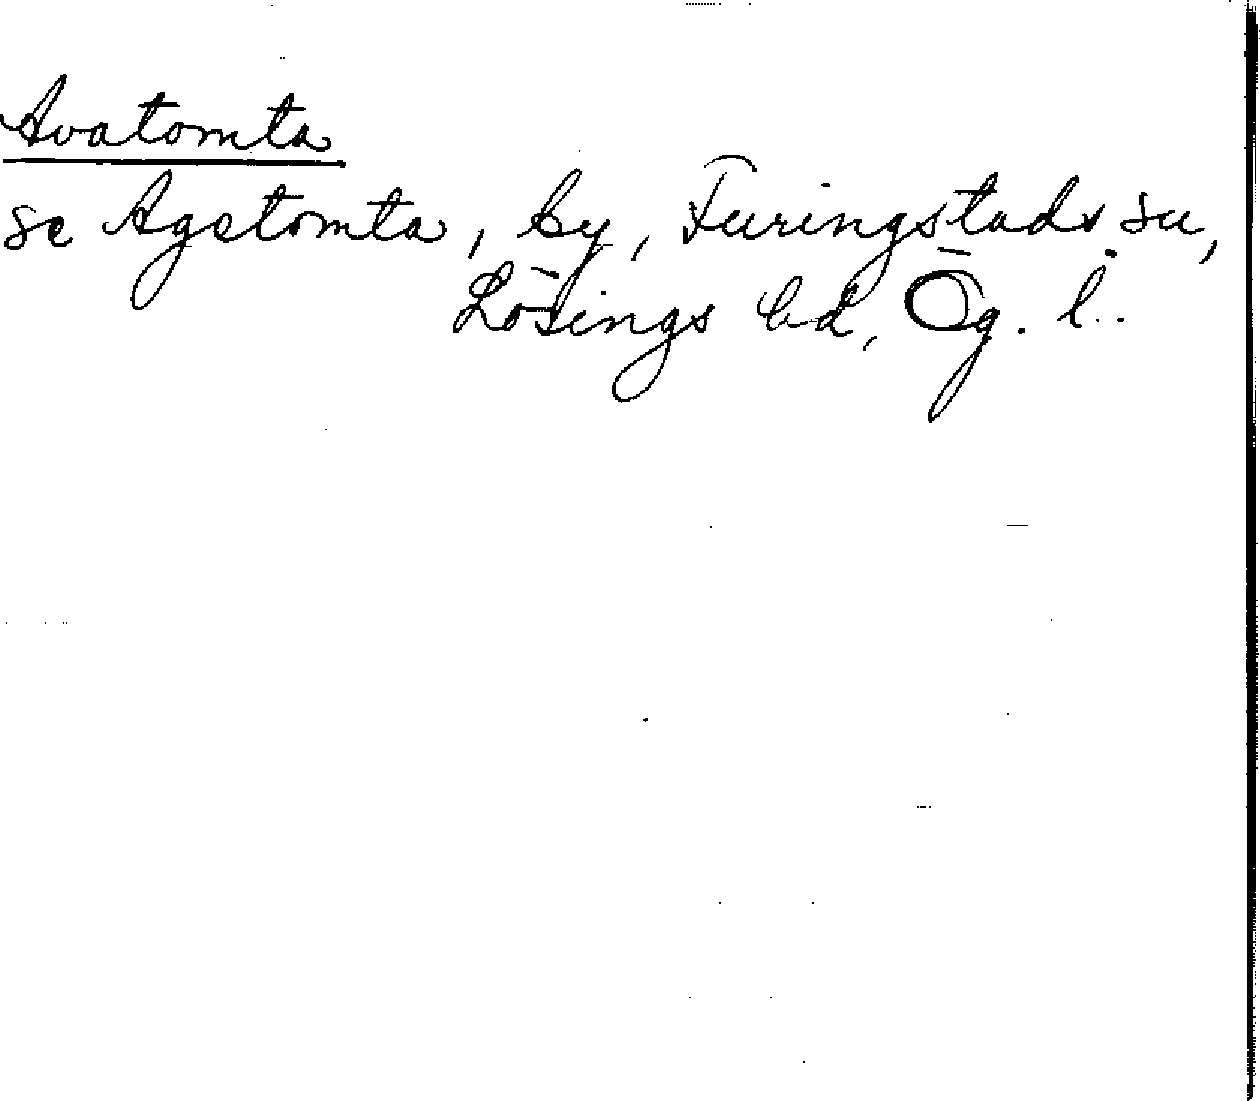 Avatomta
se Agetomta, by, Furingstads sn,
Lösings hd, Ög. l.